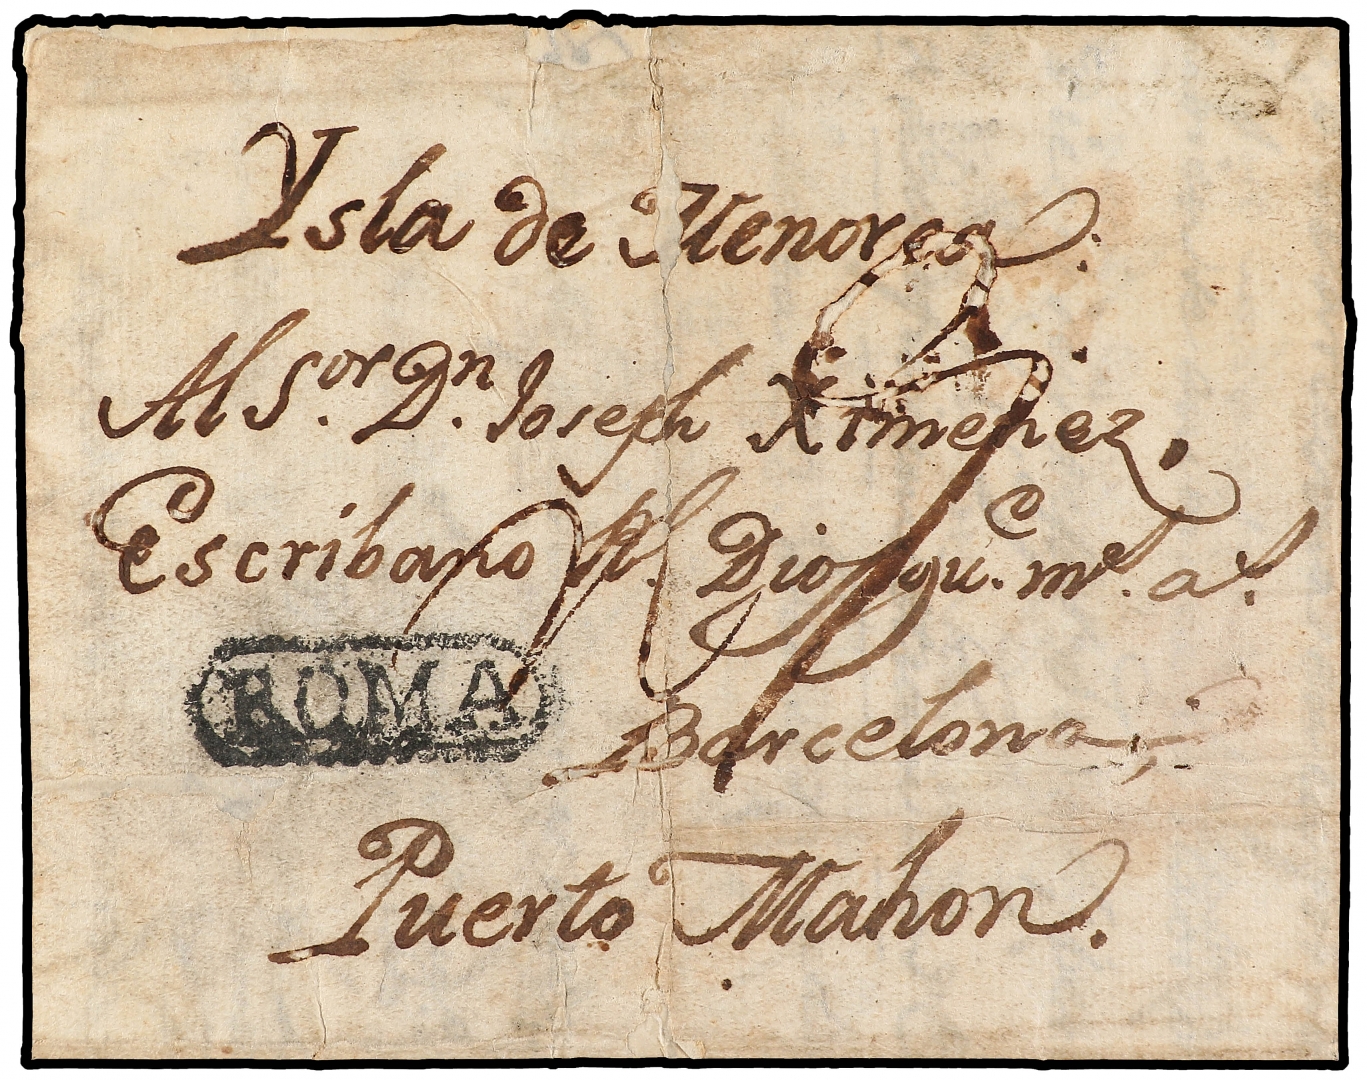 Ysla de Menorca.
Al S.or D.n Joseph Ximenez,
Escribano R.l Dios gu.e m.s a.s
ROMA
Barcelona,
Puerto Mahon.